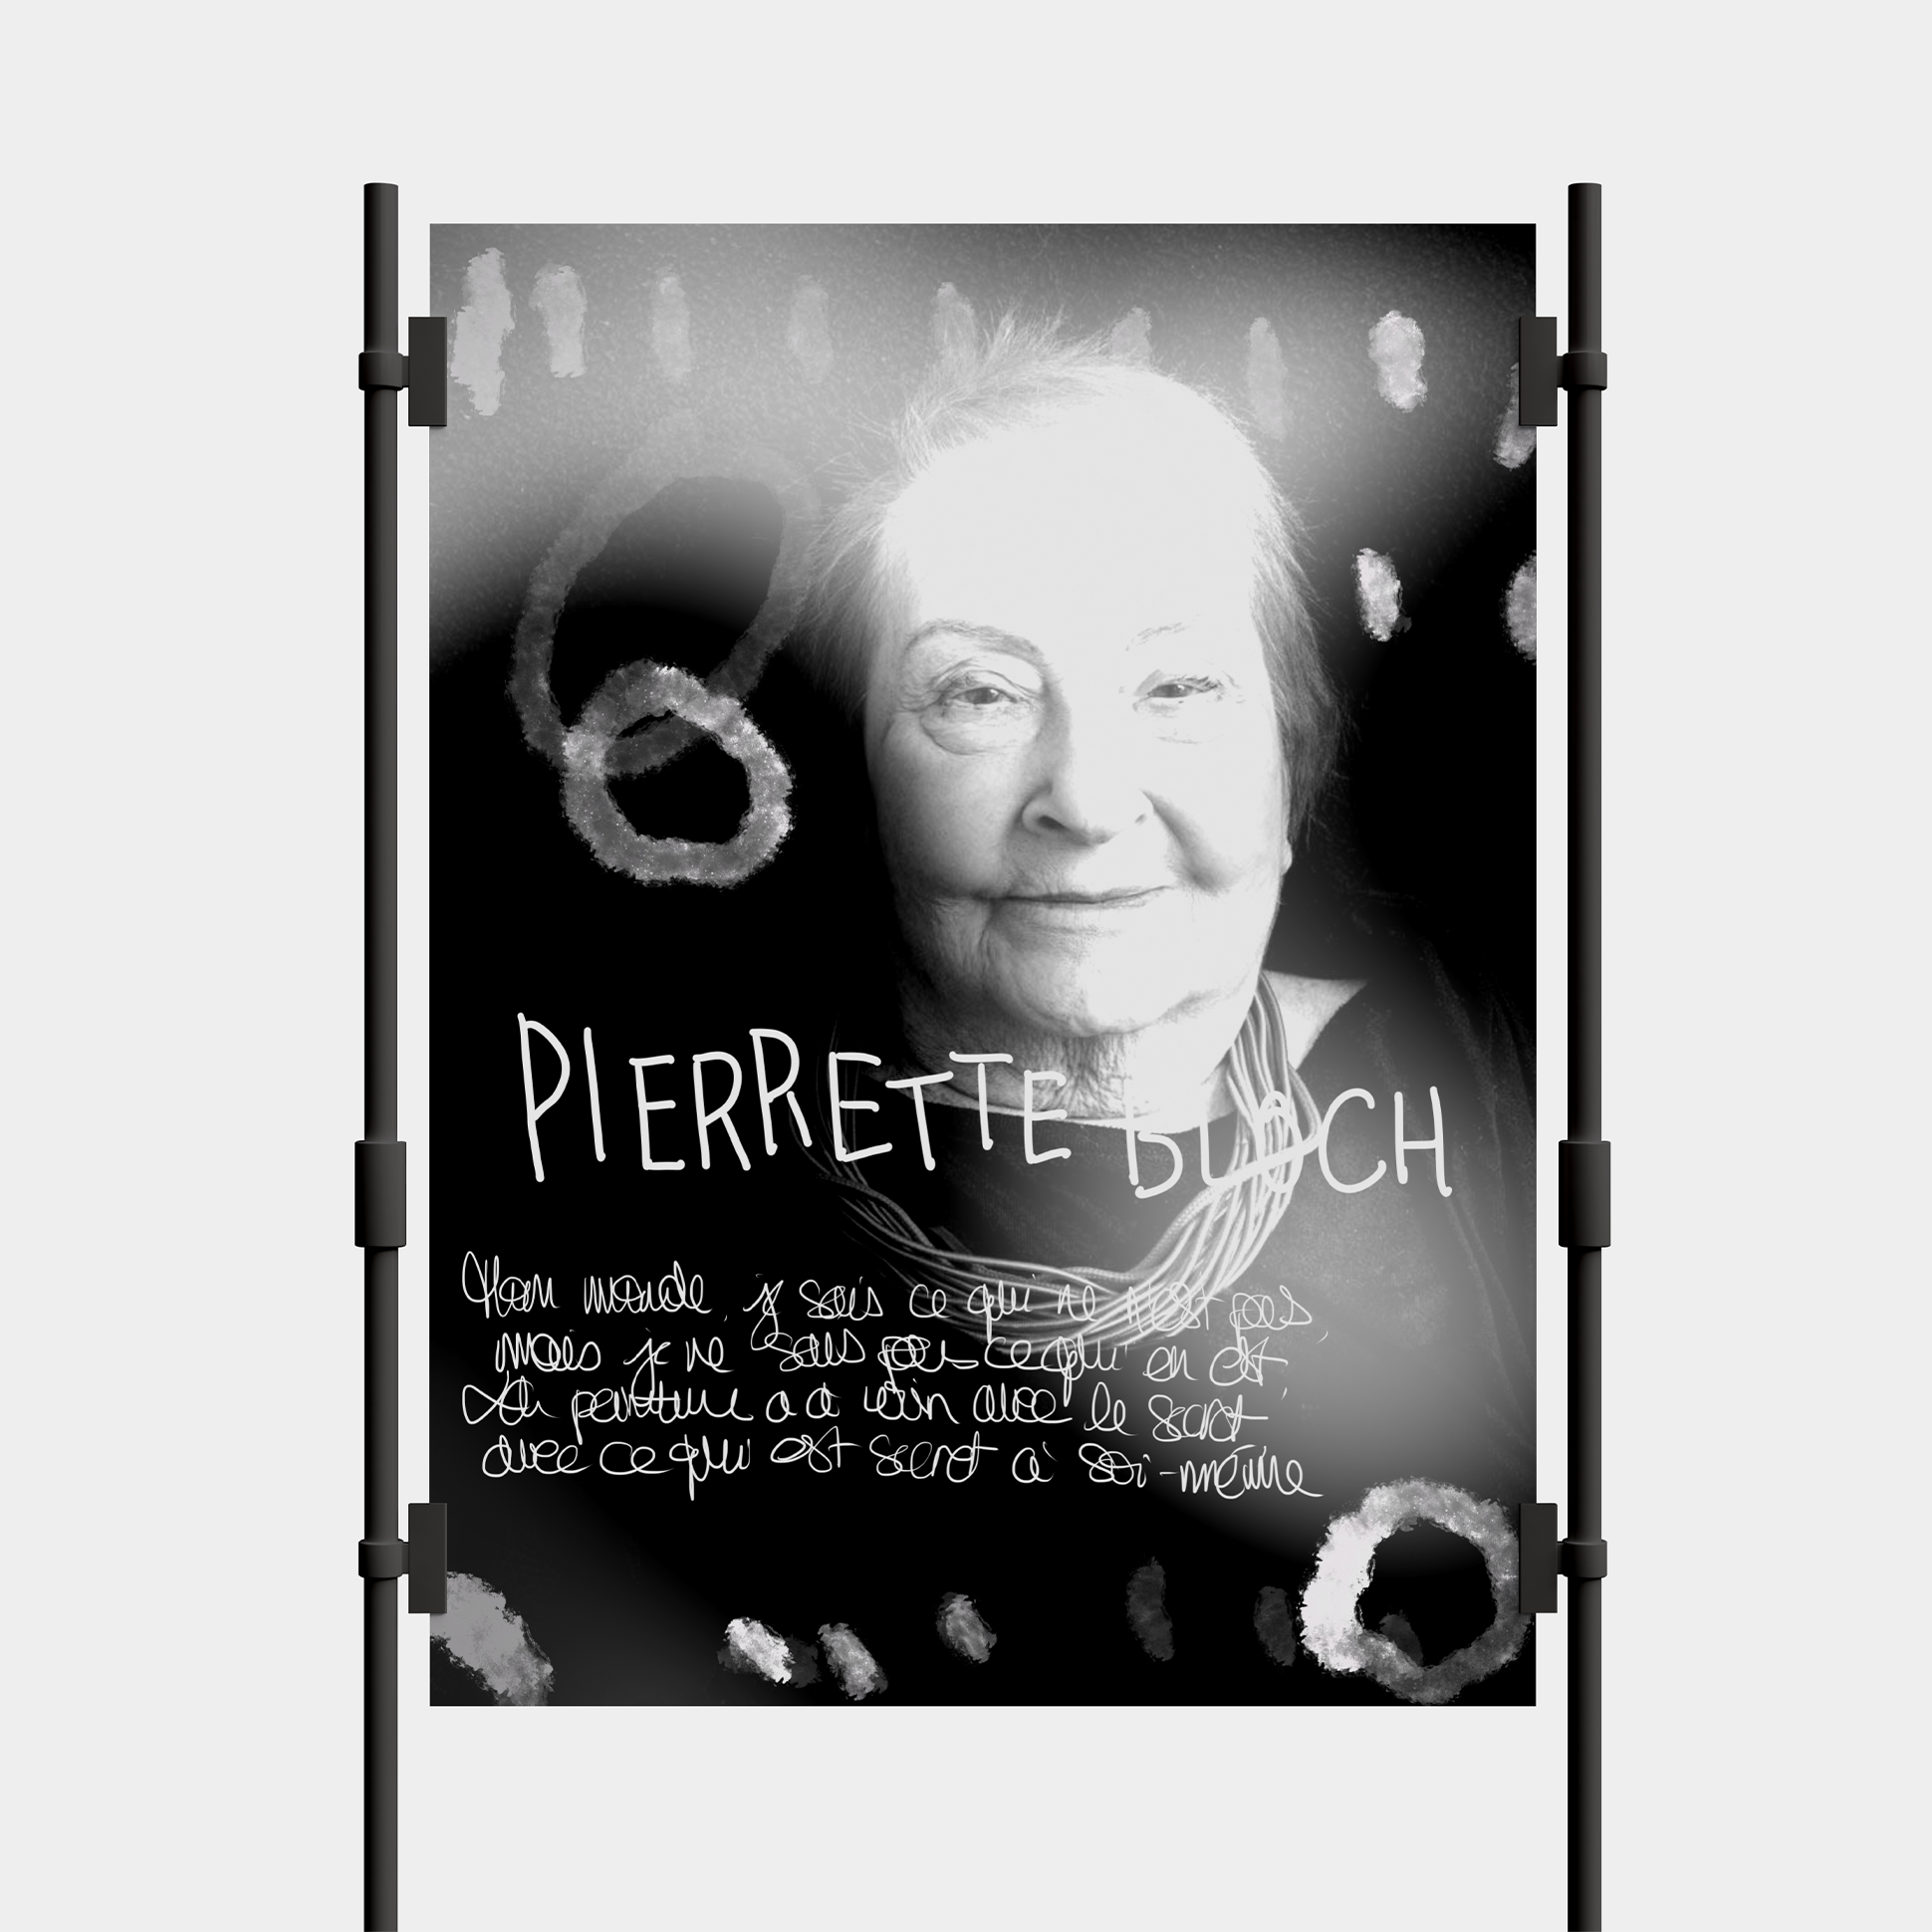 PIERRETTE BLOCH
Mon monde, je sais ce qui ne n'est pas,
mais je ne sais pas ce qui en est.
La peinture a à voir avec le secret,
avec ce qui est secret à soi-même